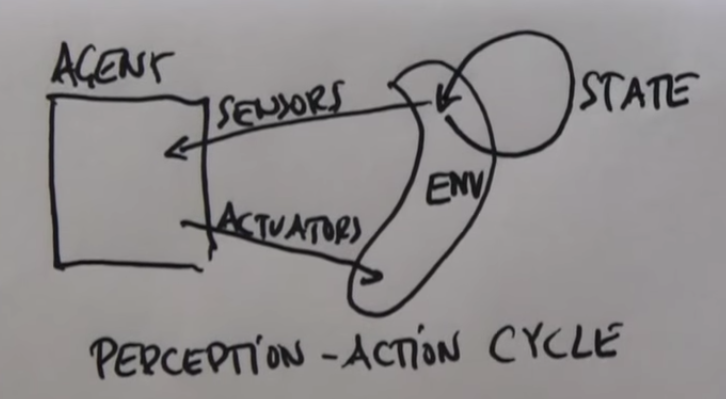 AGENT
SENSORS
STATE
ENV
ACTUATORS
PERCEPTION - ACTION CYCLE